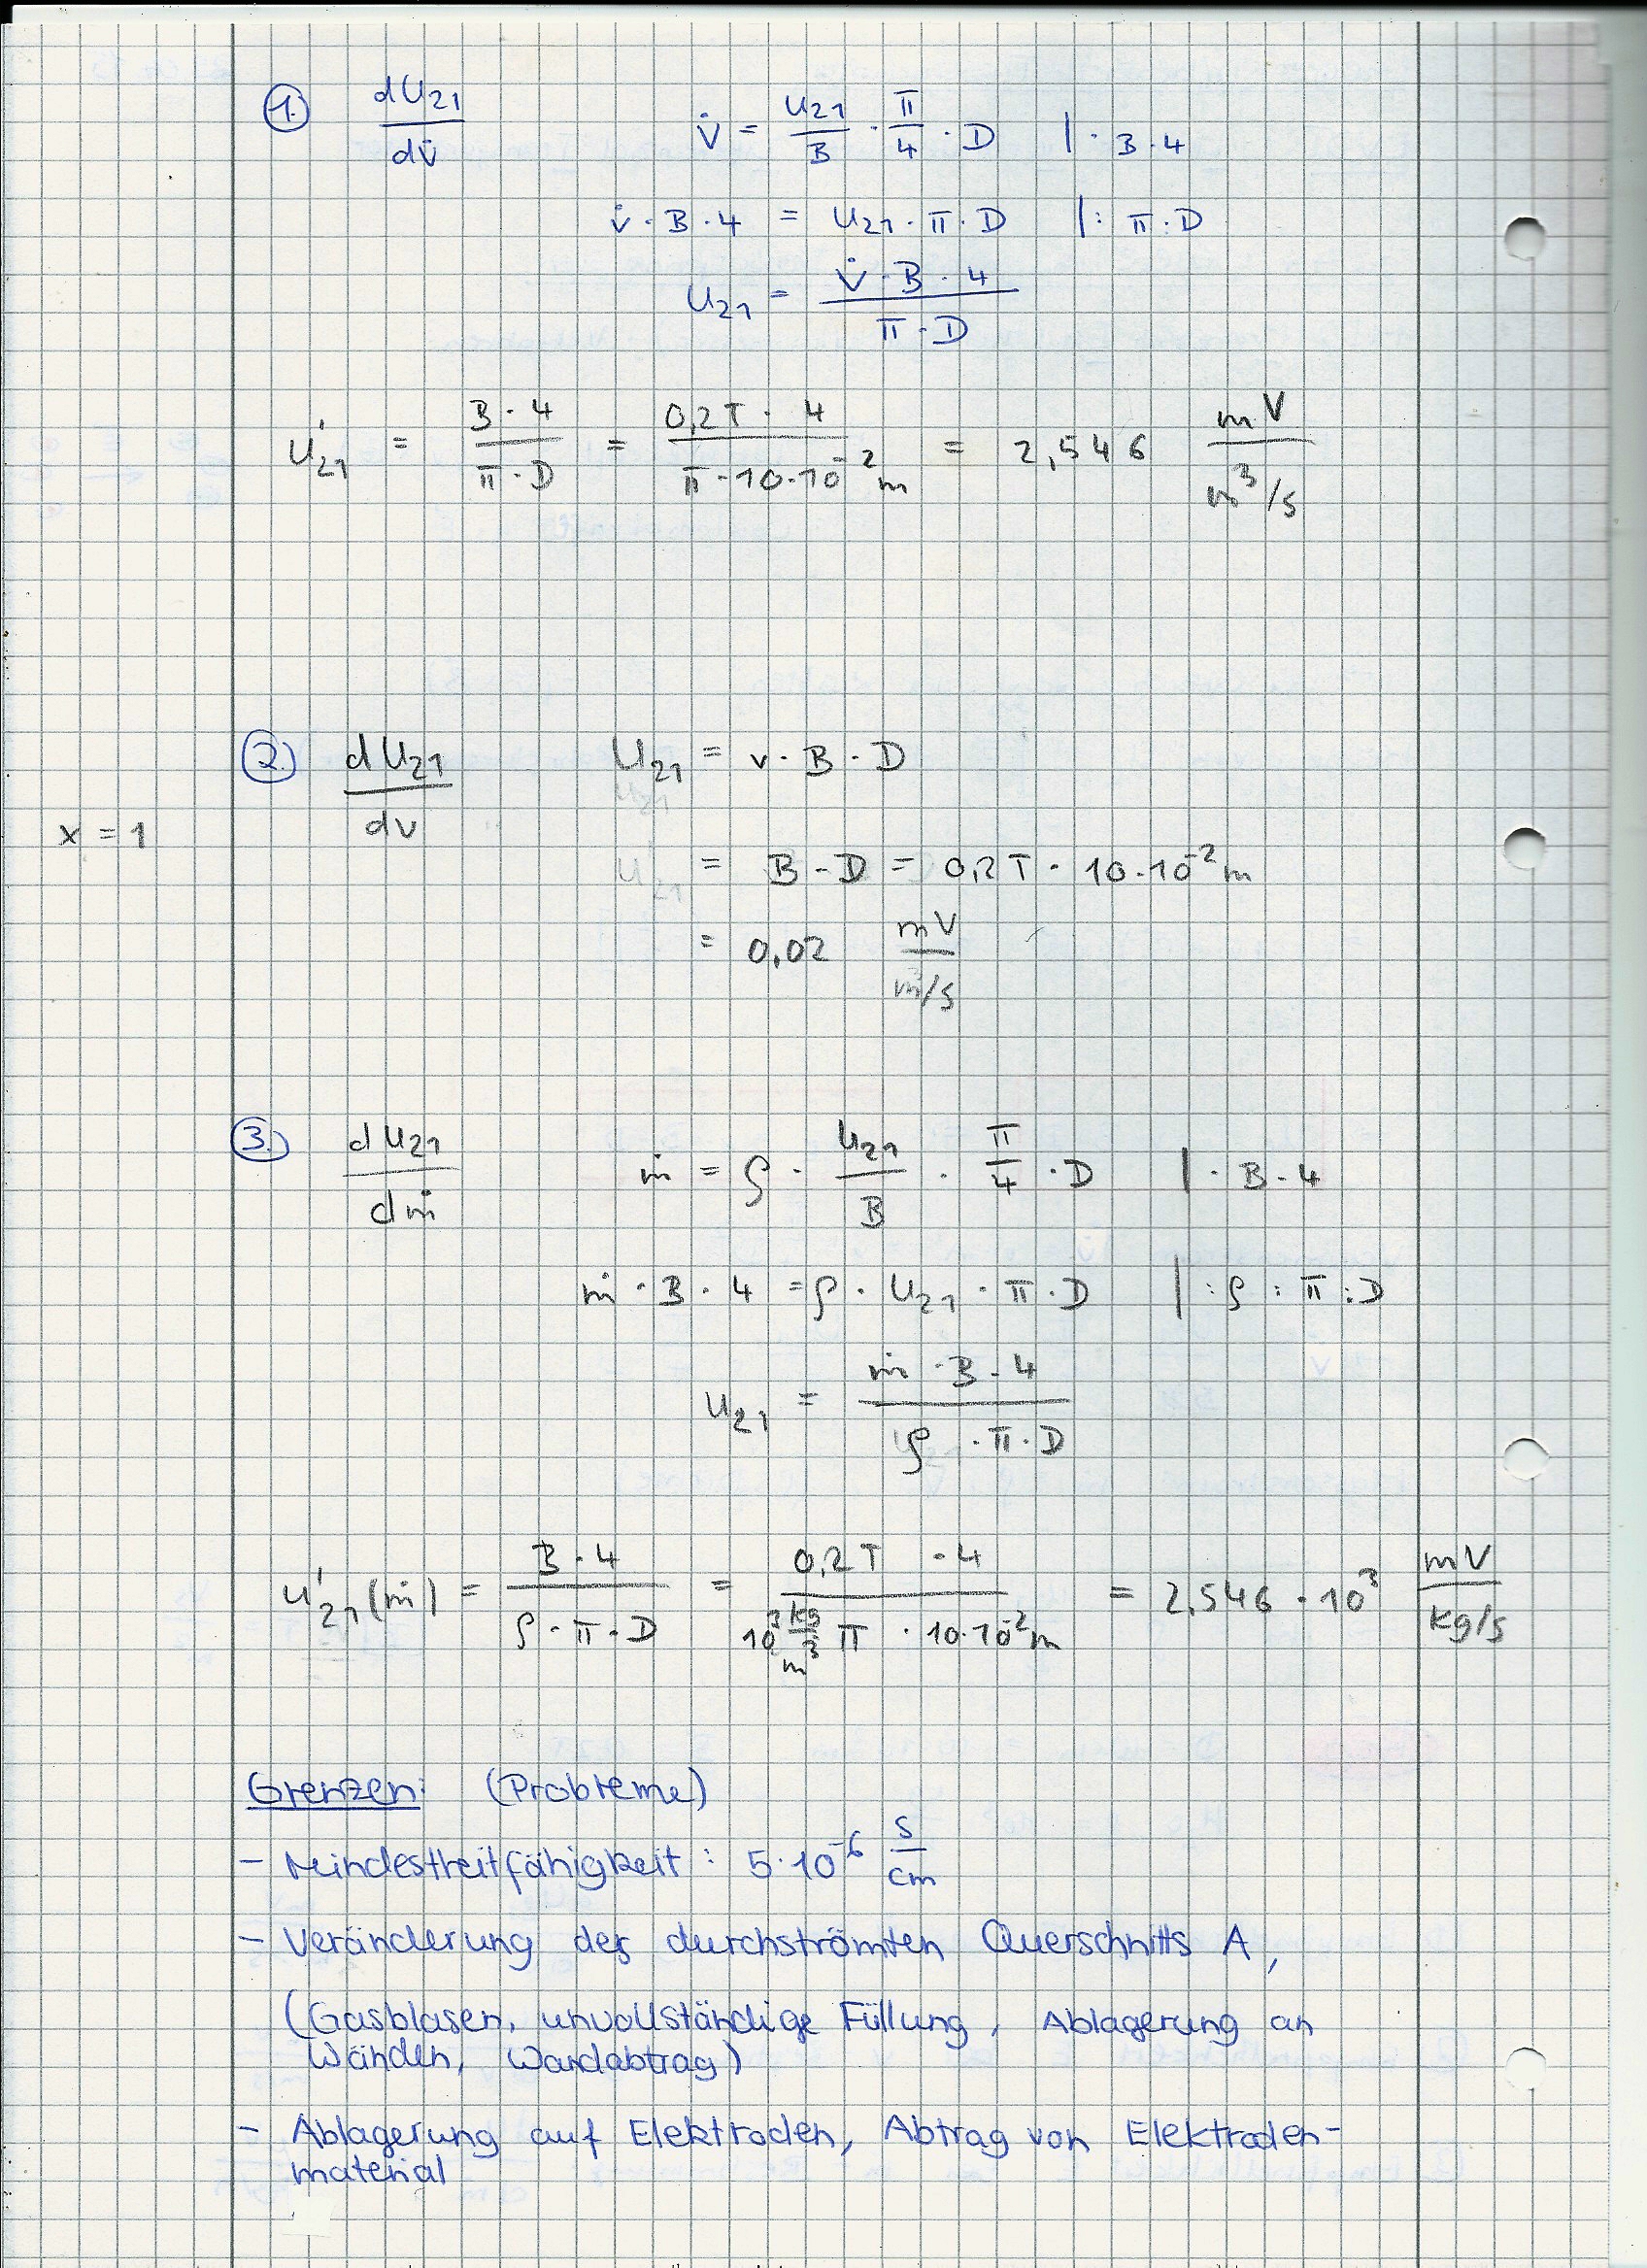 1. dU21/dV̇   V̇ = U21/B · π/4 · D   | · B · 4
V̇ · B · 4 = U21 · π · D   | : π · D
U21 = (V̇ · B · 4)/(π · D)
U'21 = (B · 4)/(π · D) = (0,2T · 4)/(π · 10 · 10⁻² m) = 2,546 mV/(m³/s)
2. dU21/dv   U21 = v · B · D
x = 1
U'21 = B · D = 0,2T · 10 · 10⁻² m
= 0,02 mV/(m/s)
3. dU21/dṁ   ṁ = ρ · U21/B · π/4 · D   | · B · 4
ṁ · B · 4 = ρ · U21 · π · D   | : ρ : π : D
U21 = (ṁ · B · 4)/(ρ · π · D)
U'21(ṁ) = (B · 4)/(ρ · π · D) = (0,2T · 4)/(10³ kg/m³ π · 10 · 10⁻² m) = 2,546 · 10³ mV/(kg/s)
Grenzen: (Probleme)
- Mindestleitfähigkeit : 5 · 10⁻⁶ S/cm
- Veränderung des durchströmten Querschnitts A,
(Gasblasen, unvollständige Füllung, Ablagerung an
Wänden, Wandabtrag)
- Ablagerung auf Elektroden, Abtrag von Elektroden-
material